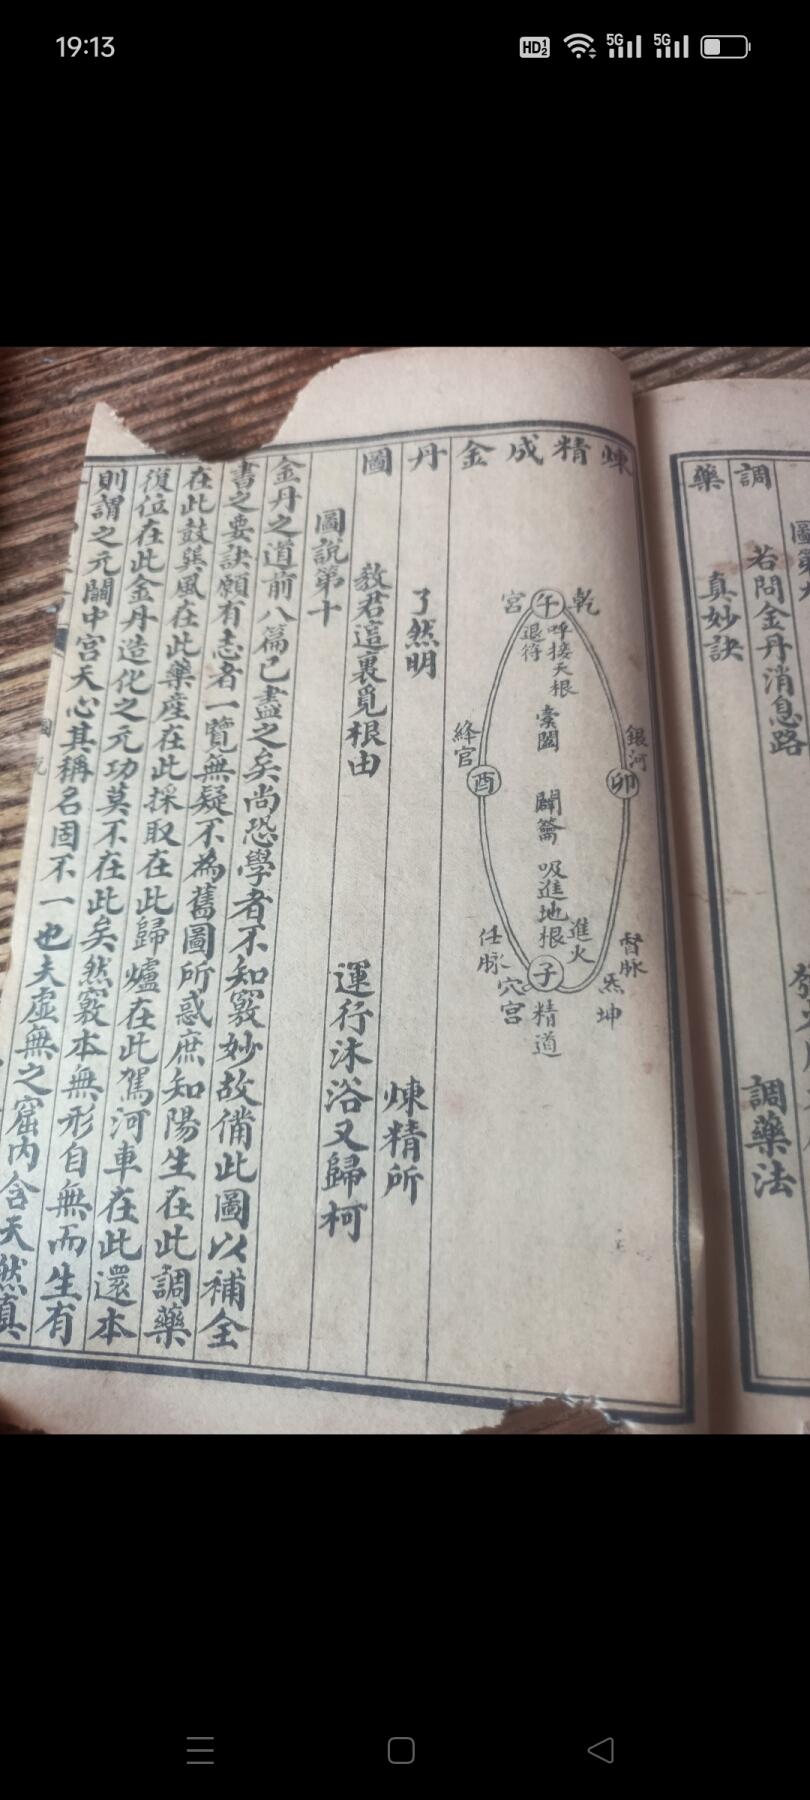 19:13
HD 1 2
5G
5G
調藥
若問金丹消息路
調藥法
真妙訣
煉精成金丹圖
乾
午
宮
呼接天根
退符
橐闔
闢籥
吸進地根
進火
銀河
卯
絳宮
酉
督脉
任脉
子
坤
穴宮
精道
了然明
煉精所
教君這裏覓根由
運行沐浴又歸柯
圖說第十
金丹之道前八篇已盡之矣尚恐學者不知竅妙故備此圖以補全
書之要訣願有志者一覽無疑不為舊圖所惑庶知陽生在此調藥
在此鼓巽風在此藥産在此採取在此歸爐在此駕河車在此還本
復位在此金丹造化之元功莫不在此矣然竅本無形自無而生有
則謂之元關中宮天心其稱名固不一也夫虛無之窟內含天然真